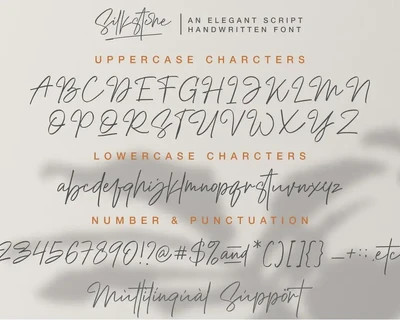 Silkstone
AN ELEGANT SCRIPT
HANDWRITTEN FONT
UPPERCASE CHARCTERS
ABCDEFGHIJKLMN
OPQRSTUVWXYZ
LOWERCASE CHARCTERS
abcdefghijklmnopqrstuvwxyz
NUMBER & PUNCTUATION
234567890!?@#$%and*()[]{}_-+:;.etc
Multilingual Support